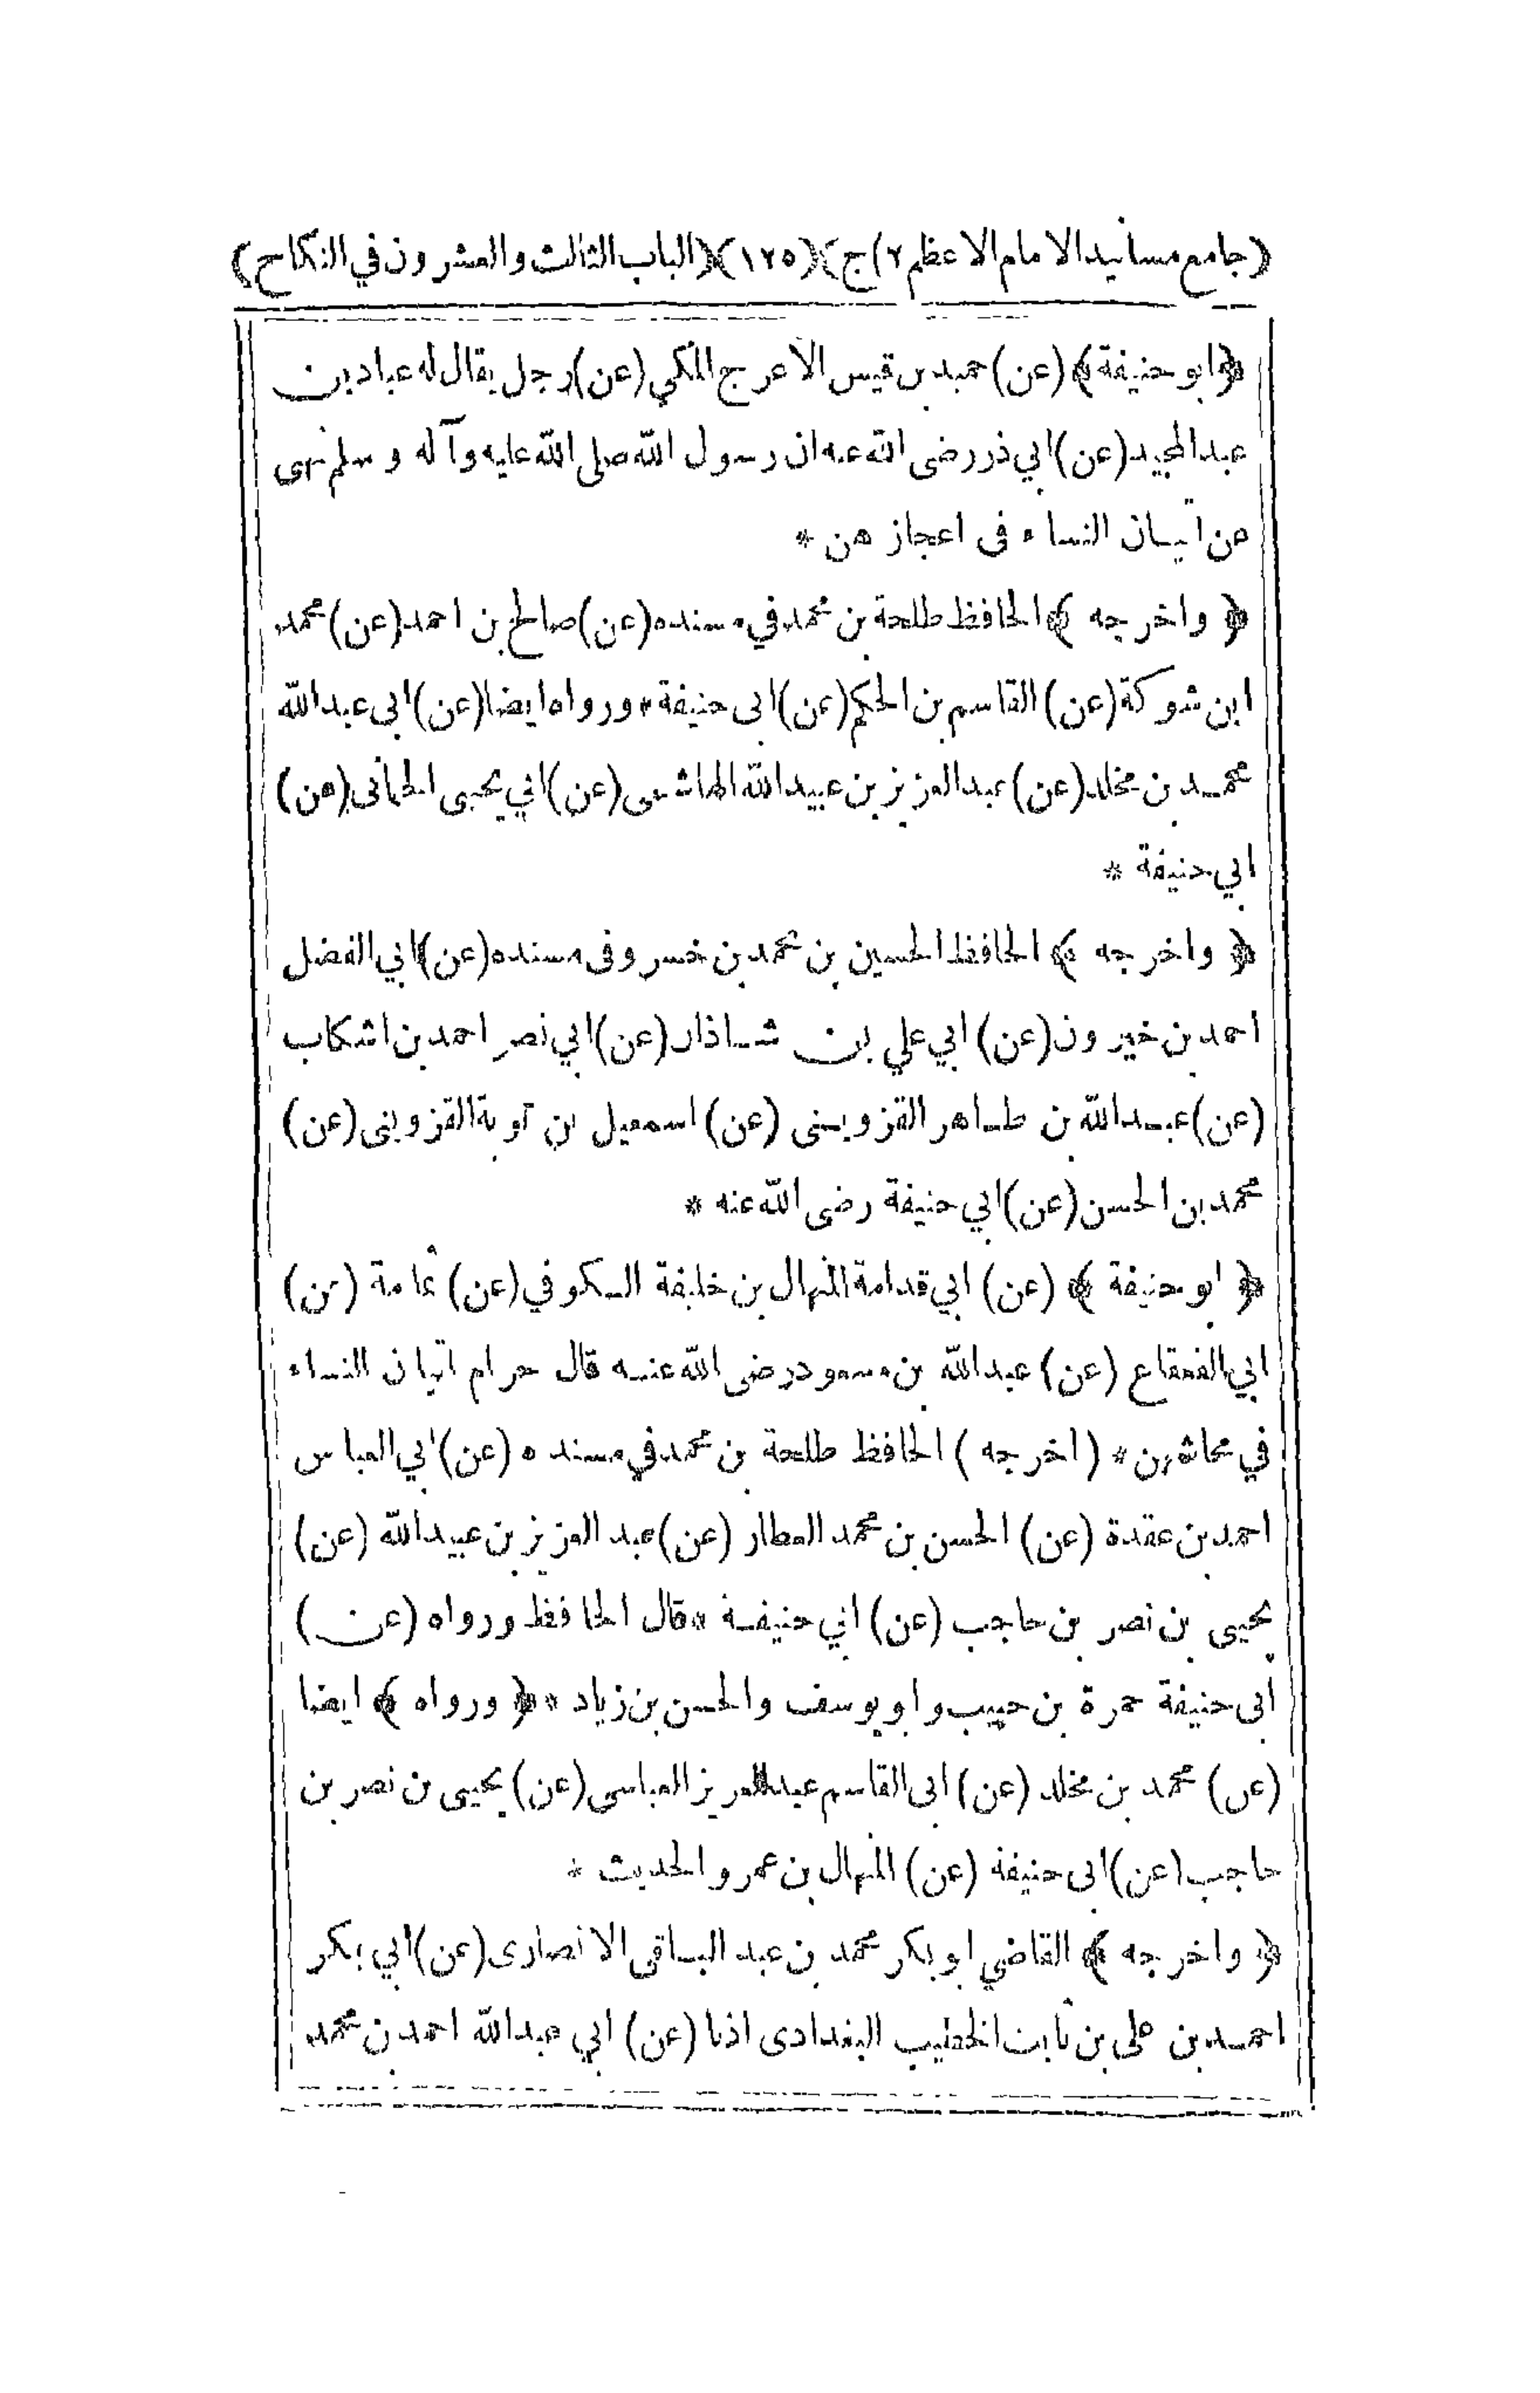 (جامع مسانيد الامام الاعظم ٢) ج) (١٢٥) (الباب الثالث والعشرون في النكاح)
﴿ابو حنيفة﴾ (عن) حميد بن قيس الاعرج المكي (عن) رجل يقال له عباد بن
عبد المجيد (عن) ابي ذر رضى الله عنه ان رسول الله صلى الله عليه وآله وسلم نهى
عن اتيان النساء فى اعجازهن *
﴿ واخرجه ﴾ الحافظ طلحة بن محمد في مسنده (عن) صالح بن احمد (عن) محمد
ابن شوكة (عن) القاسم بن الحكم (عن) ابى حنيفة * ورواه ايضا (عن) ابى عبد الله
محمد بن مخلد (عن) عبد العزيز بن عبيد الله الهاشمى (عن) ابي يحيى الحمانى (عن)
ابي حنيفة *
﴿ واخرجه ﴾ الحافظ الحسين بن محمد بن خسرو فى مسنده (عن) ابي الفضل
احمد بن خيرون (عن) ابي علي بن شاذان (عن) ابي نصر احمد بن اشكاب
(عن) عبد الله بن طاهر القزوينى (عن) اسمعيل بن توبة القزوينى (عن)
محمد بن الحسن (عن) ابي حنيفة رضى الله عنه *
﴿ ابو حنيفة ﴾ (عن) ابي قدامة المنهال بن خليفة الكوفي (عن) ثمامة (عن)
ابي القعقاع (عن) عبد الله بن مسعود رضى الله عنه قال حرام اتيان النساء
في محاشهن * (اخرجه) الحافظ طلحة بن محمد في مسنده (عن) ابي العباس
احمد بن عقدة (عن) الحسن بن محمد العطار (عن) عبد العزيز بن عبيد الله (عن)
يحيى بن نصر بن حاجب (عن) ابي حنيفة * قال الحافظ ورواه (عن)
ابى حنيفة حمزة بن حبيب وابو يوسف والحسن بن زياد * ﴿ ورواه ﴾ ايضا
(عن) محمد بن مخلد (عن) ابى القاسم عبد العزيز العباسى (عن) يحيى بن نصر بن
حاجب (عن) ابى حنيفة (عن) المنهال بن عمرو الحديث *
﴿ واخرجه ﴾ القاضي ابو بكر محمد بن عبد الباقى الانصارى (عن) ابي بكر
احمد بن على بن ثابت الخطيب البغدادى اذنا (عن) ابي عبد الله احمد بن محمد